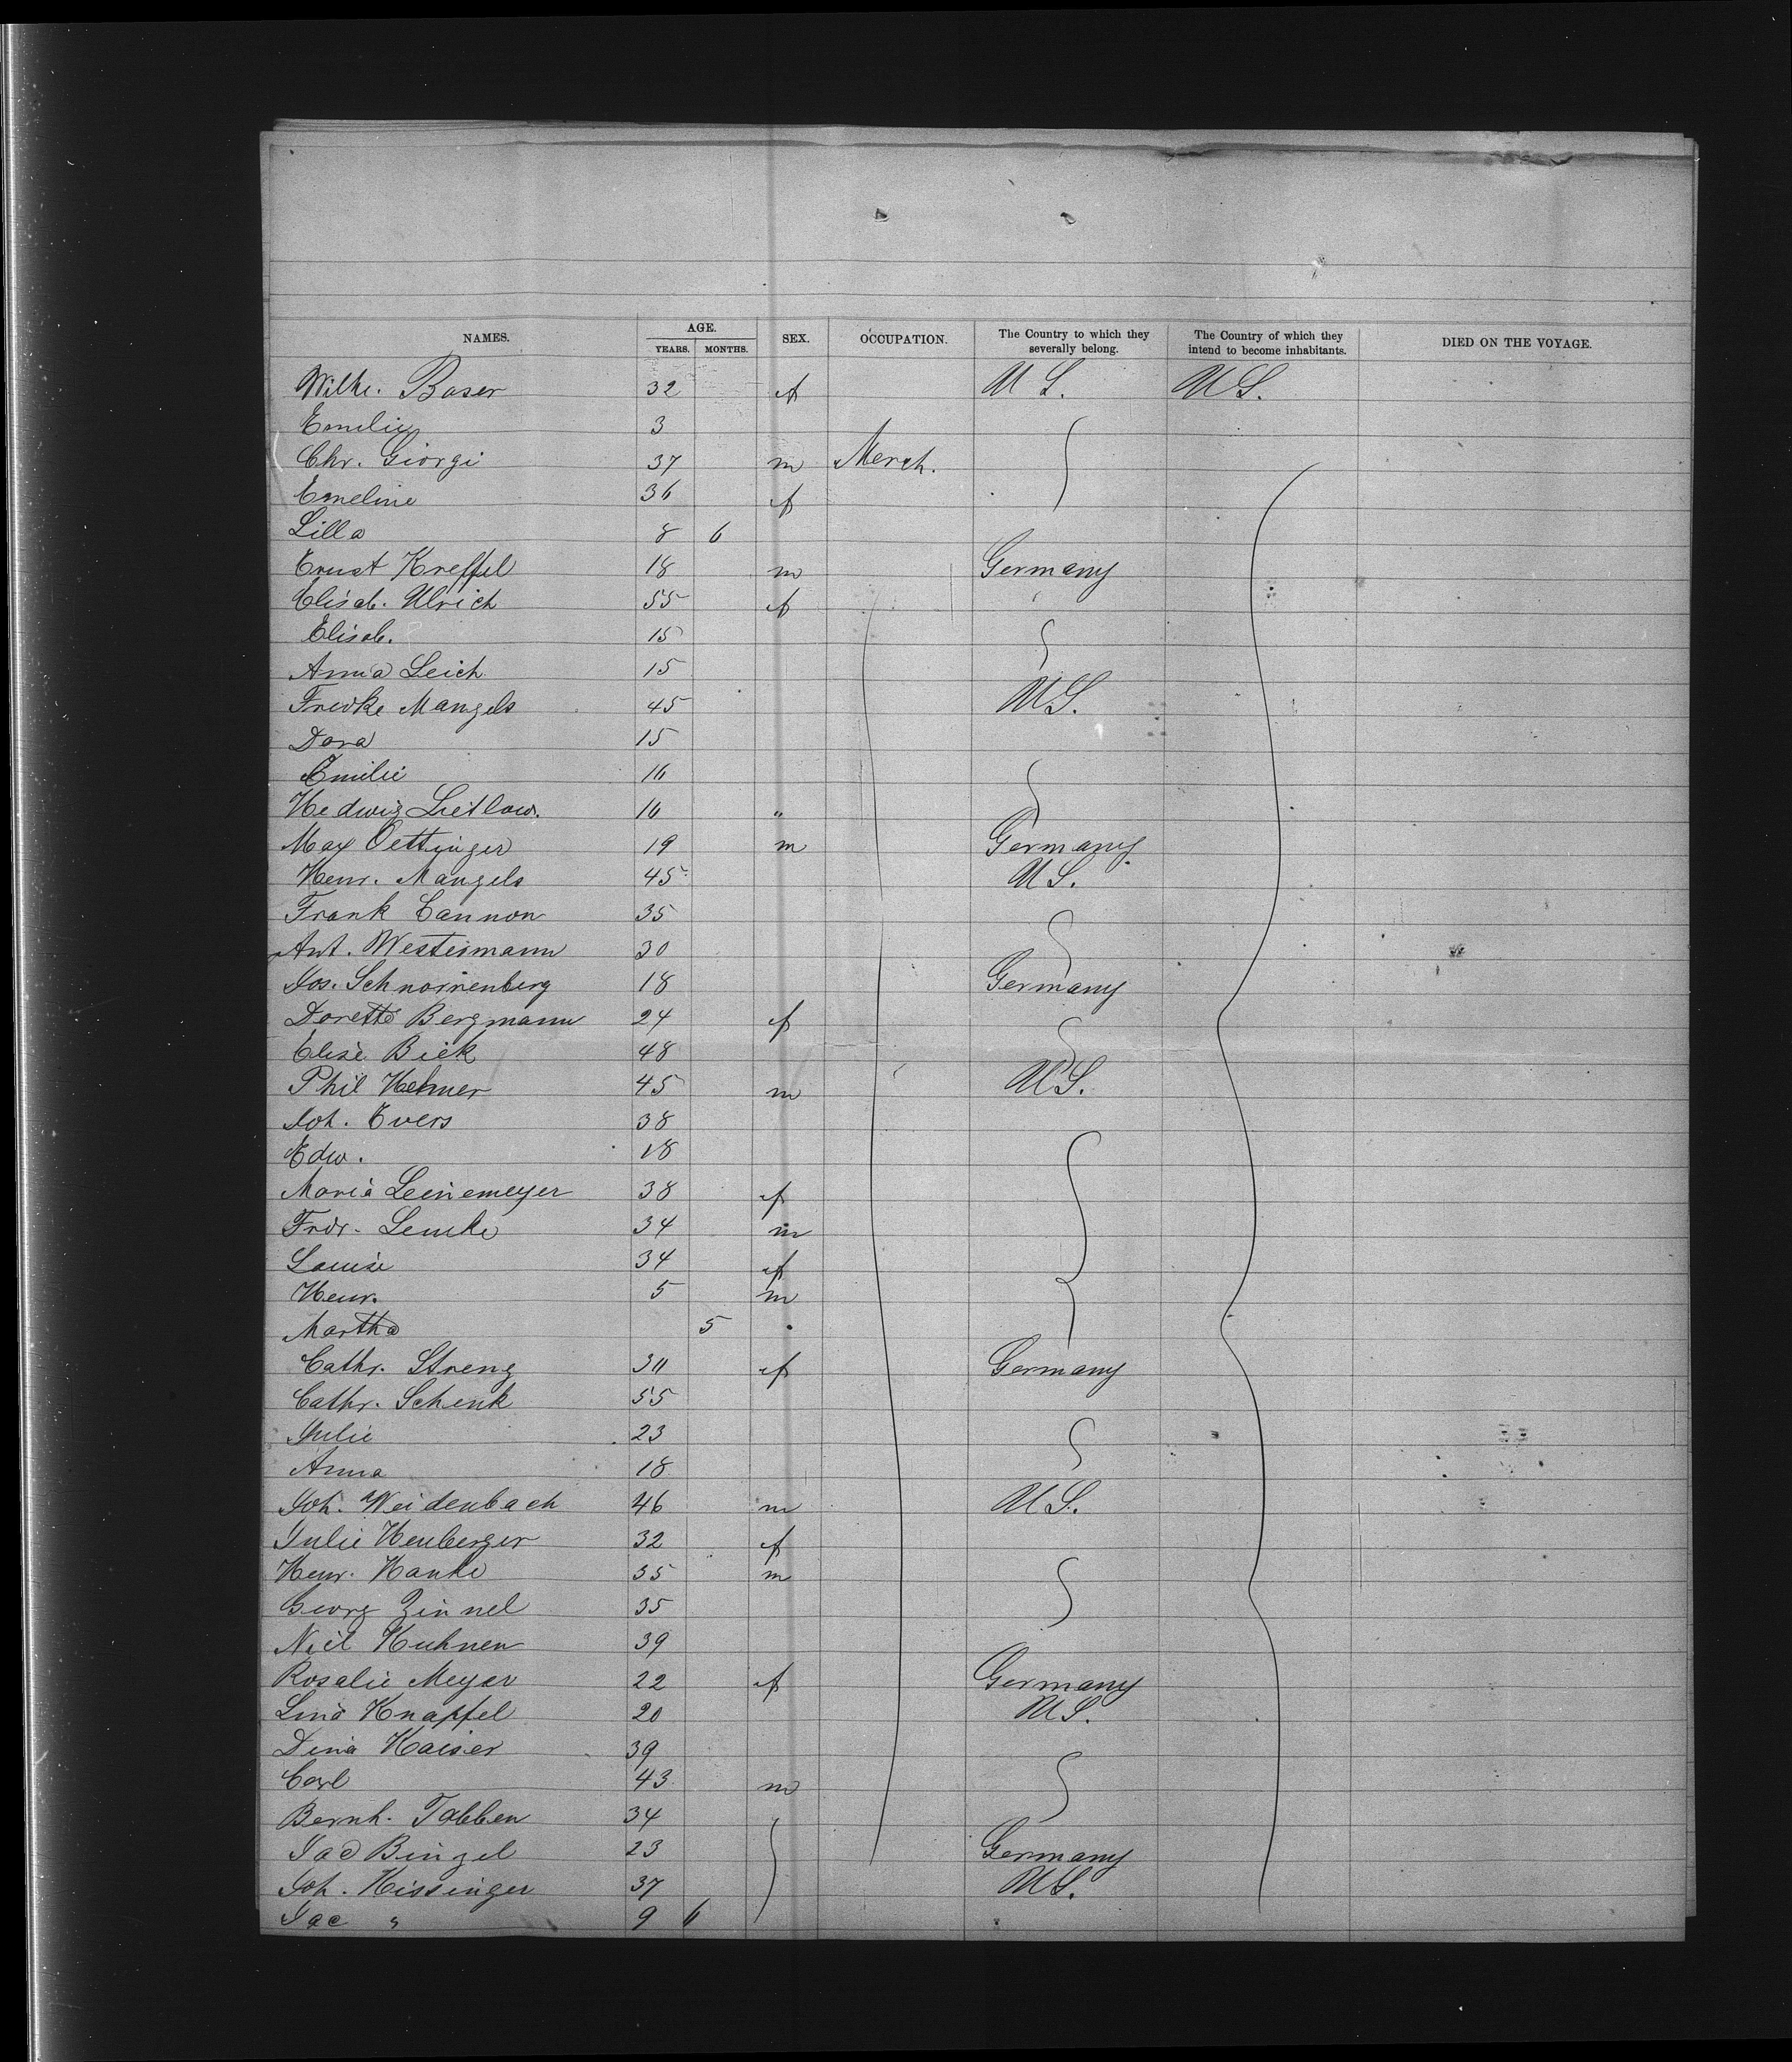 NAMES. AGE. YEARS. MONTHS. SEX. OCCUPATION. The Country to which they severally belong. The Country of which they intend to become inhabitants. DIED ON THE VOYAGE.
Wilhe. Baser 32 f U S. U S.
Emilie 3
Chr. Giorgi 37 m Merch.
Emeline 36 f
Lilla 8 6
Ernst Kreffel 18 m Germany
Elisab. Ulrich 55 f
Elisab. 15
Anna Leich 15
Fredke Mangels 45 U S.
Dora 15
Emilie 16
Hedwig Lietlow. 16 "
Max Oettinger 19 m Germany
Henr. Mangels 45 U S.
Frank Cannon 35
Ant. Westermann 30
Jos. Schnorrenberg 18 Germany
Dorette Bergmann 24 f
Elise Biek 48
Phil Hehner 45 m U S.
Joh. Evers 38
Edw. 18
Maria Leinemeyer 38 f
Fror. Lemke 34 m
Louise 34 f
Henr. 5 m
Martha 5
Cathr. Streng 30 f Germany
Cathr. Schenk 55
Julie 23
Anna 18
Joh. Weidenbach 46 m U S.
Julie Heuberger 32 f
Henr. Hanke 35 m
Georg Zinnel 35
Nicl Kuhnen 39
Rosalie Meyer 22 f Germany
Lina Knapfel 20 U S.
Dina Kaiser 39
Carl 43 m
Bernh. Tabben 34
Jac Bingel 23 Germany
Joh. Kissinger 37 U S.
Jac " 9 6